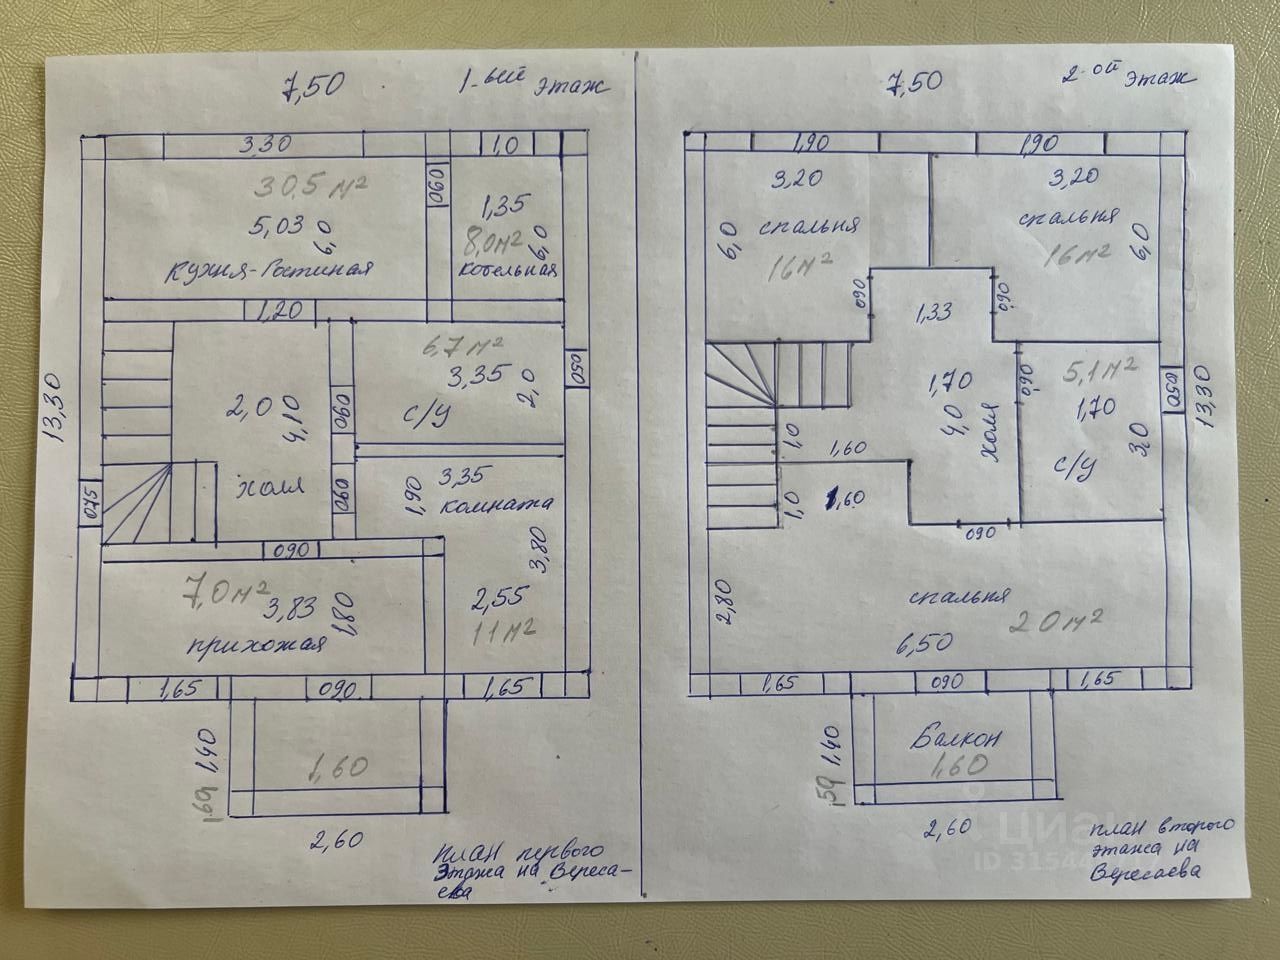 7,50
1-ый этаж
3.30
1,0
30.5 м²
5,03
6,0
Кухня-Гостиная
090
1,35
8,0м²
6,0
котельная
1,20
6,7 м²
3,35
2,0
с/у
050
13,30
2,0
4,10
холл
090
090
075
3,35
1,90
комната
3,80
2,55
11 м²
090
7,0 м²
3,83
1,80
прихожая
1,65
090
1,65
1,40
1,60
2,60
план первого
этажа на Вереса-
ева
7,50
2-ой этаж
1,90
1,90
3,20
6,0
спальня
16 м²
3,20
спальня
16 м²
6,0
090
090
1,33
1,70
4,0
холл
090
5,1 м²
1,70
3,0
с/у
050
13,30
1,0
1,60
1,0
1,60
090
2,80
спальня
20 м²
6,50
1,65
090
1,65
1,40
Балкон
1,60
2,60
план второго
этажа на
Вересаева